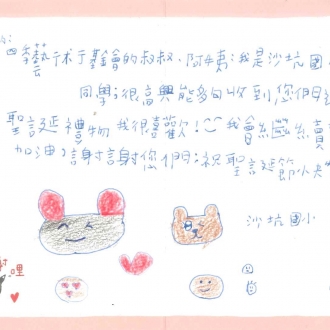 四季藝術基金會的叔叔、阿姨:我是沙坑國
同學;很高興能夠收到您們
聖誕禮物我很喜歡!我會繼續
加油!謝謝您們!祝聖誕節快
沙坑國小
哩